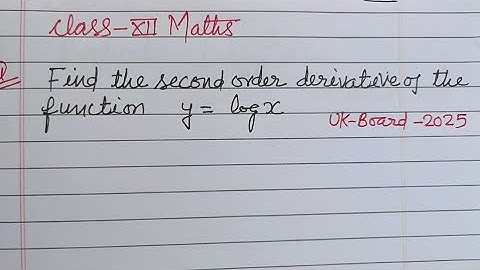 Class-XII Maths
Q Find the second order derivative of the
function y = log x
UK-Board-2025